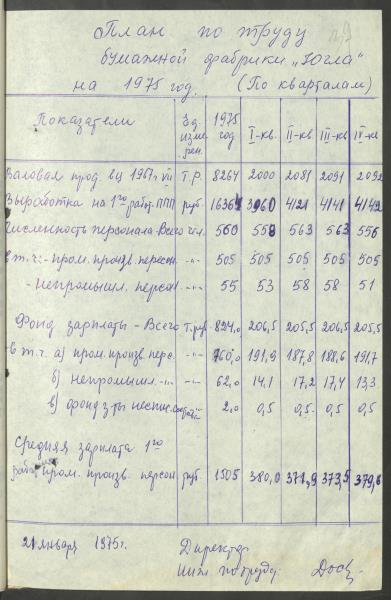 План по труду
бумажной фабрики „Югла“
на 1975 год. (По кварталам)
Показатели Ед. изме рен. 1975 год I-кв. II-кв III-кв IV-кв
Валовая прод. в ц 1967г. VII Т.р. 8264 2000 2081 2091 2092
Выработка на 1го работ. ППП руб. 16365 3960 4121 4141 4142
Численность персонала-Всего чл. 560 558 563 563 556
в т.ч.:- пром. произв. персон. -"- 505 505 505 505 505
- непромышл. персон. -"- 55 53 58 58 51
Фонд зарплаты - Всего т.руб. 824,0 206,5 205,5 206,5 205,5
в т.ч. а) пром. произв. перс. -"- 760,0 191,9 187,8 188,6 191,7
б) непромышл. -"- -"- 62,0 14,1 17,2 17,4 13,3
в) фонд з-ты несписс. состава 2,0 0,5 0,5 0,5 0,5
Средняя зарплата 1го
работ. пром. произв. персон. руб. 1505 380,0 371,9 373,5 379,6
21 января 1975г. Директор
Инж по труду